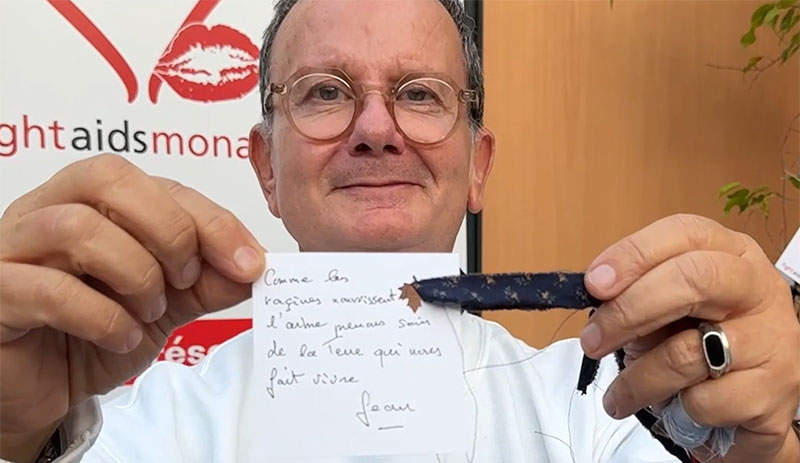 ghtaidsmona
Comme les
racines nourrissent
l'arbre prenons soin
de la Terre qui nous
fait vivre
Jean